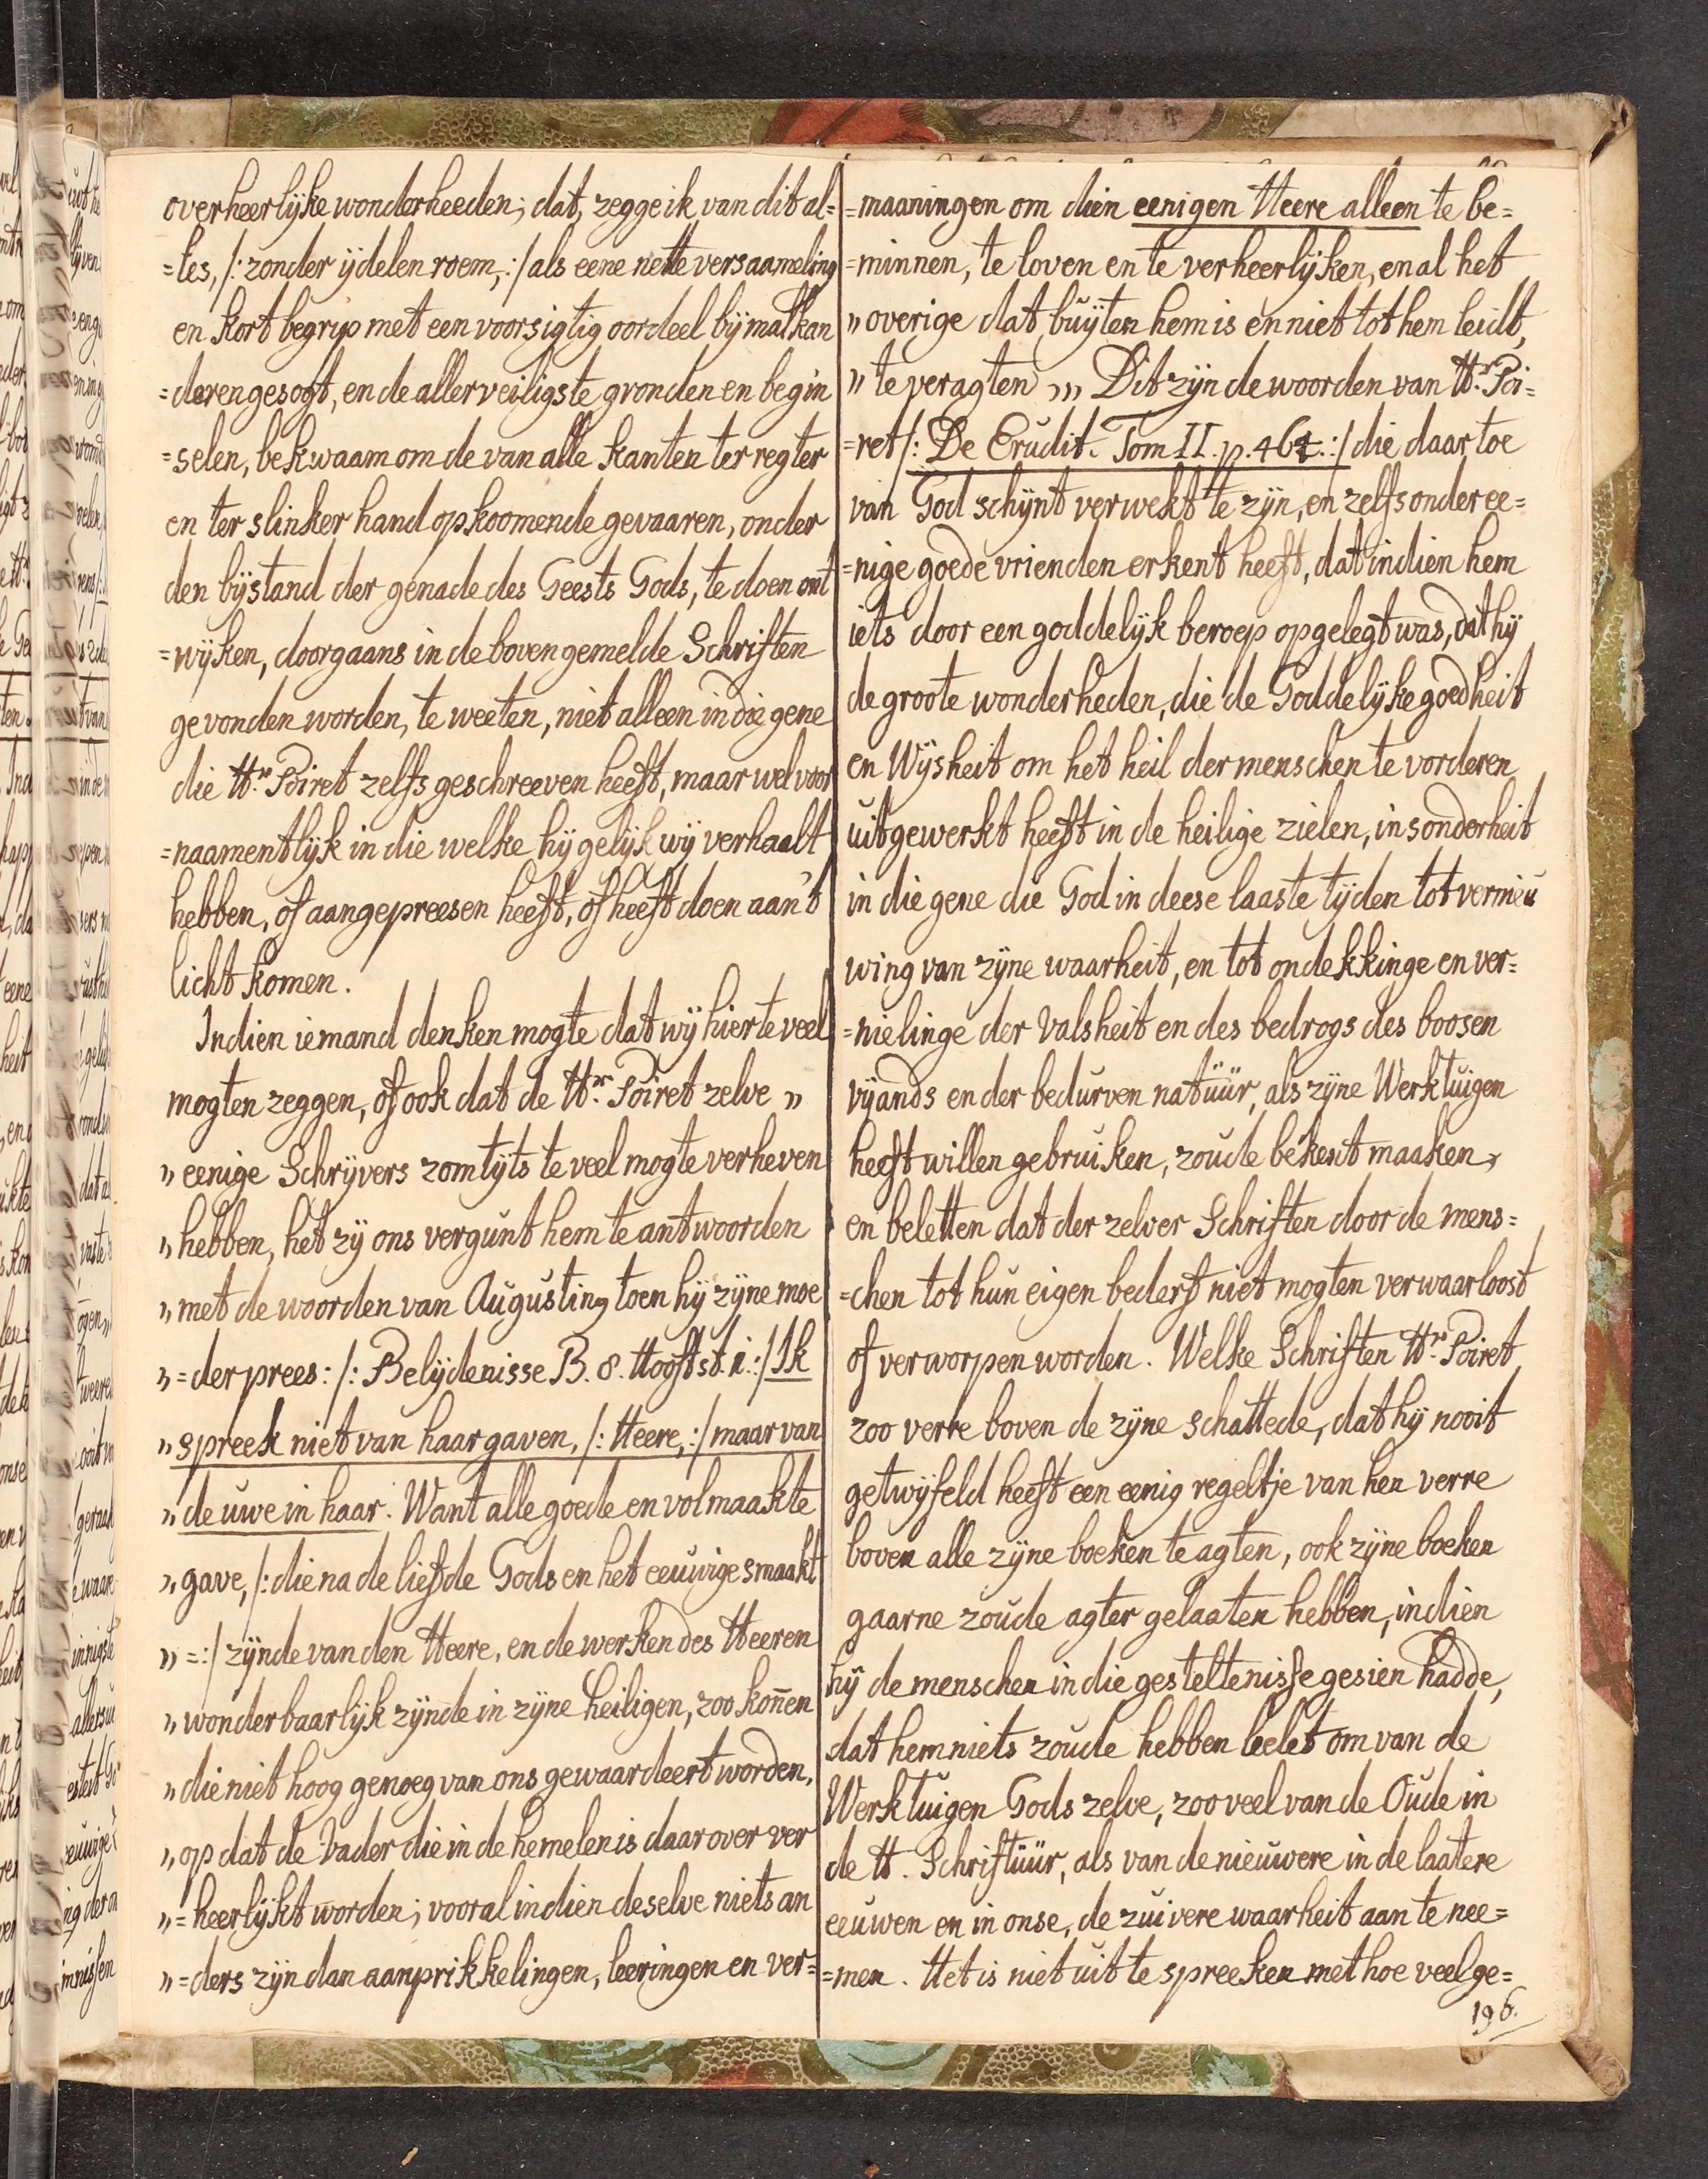 overheerlijke wonderheeden; dat, zegge ik van dit al=
=les, /: zonder ijdelen roem, :/ als eene nette versaameling
en kort begrip met een voorsigtig oordeel bij malkan
=deren gesogt, en de allerveiligste gronden en begin
=selen, bekwaam om de van alle kanten ter regter
en ter slinker hand opkoomende gevaaren, onder
den bijstand der genade des Geests Gods, te doen ont
=wijken, doorgaans in de boven gemelde Schriften
gevonden worden, te weeten, niet alleen in die gene
die Hr. Poiret zelfs geschreeven heeft, maar wel voor
=naamentlijk in die welke hij gelijk wij verhaalt
hebben, of aangepreesen heeft, of heeft doen aan't
licht komen.
Indien iemand denken mogte dat wij hier te veel
mogten zeggen, of ook dat de Hr. Poiret zelve „
„ eenige Schrijvers zomtijts te veel mogte verheven
„ hebben, het zij ons vergunt hem te antwoorden
„ met de woorden van Augusting toen hij zijne moe
„ =der prees: /: Belijdenisse B. 8. Hooftst. i. :/ Ik
„ spreek niet van haar gaven, /: Heere, :/ maar van
„ de uwe in haar. Want alle goede en volmaakte
„ gave, /: die na de liefde Gods en het eeuwige smaakt
„ = :/ zijnde van den Heere, en de werken des Heeren
„ wonderbaarlijk zijnde in zijne heiligen, zoo koñen
„ die niet hoog genoeg van ons gewaardeert worden,
„ op dat de Vader die in de hemelen is daar over ver
„ =heerlijkt worden; vooral indien deselve niets an
„ =ders zijn dan aanprikkelingen, leeringen en ver=
=maaningen om dien eenigen Heere alleen te be=
=minnen, te loven en te verheerlijken, en al het
„ overige dat buijten hem is en niet tot hem leidt,
„ te veragten „„ Dit zijn de woorden van Hr. Poi=
=ret /: De Erudit. Tom II. p. 464. :/ die daar toe
van God schijnt verwekt te zijn, en zelfs onder ee=
=nige goede vrienden erkent heeft, dat indien hem
iets door een goddelijk beroep opgelegt was, dat hij
de groote wonderheden, die de Goddelijke goedheit
en Wijsheit om het heil der menschen te vorderen
uitgewerkt heeft in de heilige zielen, insonderheit
in die gene die God in deese laaste tijden tot vernieu
wing van zijne waarheit, en tot ondekkinge en ver=
=nielinge der valsheit en des bedrogs des boosen
vijands en der bedurven natuur, als zijne Werktuigen
heeft willen gebruiken, zoude bekent maaken,
en beletten dat der zelver Schriften door de mens=
=chen tot hun eigen bederf niet mogten verwaarloost
of verworpen worden. Welke Schriften Hr. Poiret
zoo verre boven de zijne schattede, dat hij nooit
getwijfeld heeft een eenig regeltje van hen verre
boven alle zijne boeken te agten, ook zijne boeken
gaarne zoude agter gelaaten hebben, indien
hij de menschen in die gesteltenisse gesien hadde,
dat hem niets zoude hebben belet om van de
Werktuigen Gods zelve, zoo veel van de Oude in
de H. Schriftuur, als van de nieuwere in de laatere
eeuwen en in onse, de zuivere waarheit aan te nee=
=men. Het is niet uit te spreeken met hoe veel ge=
196.